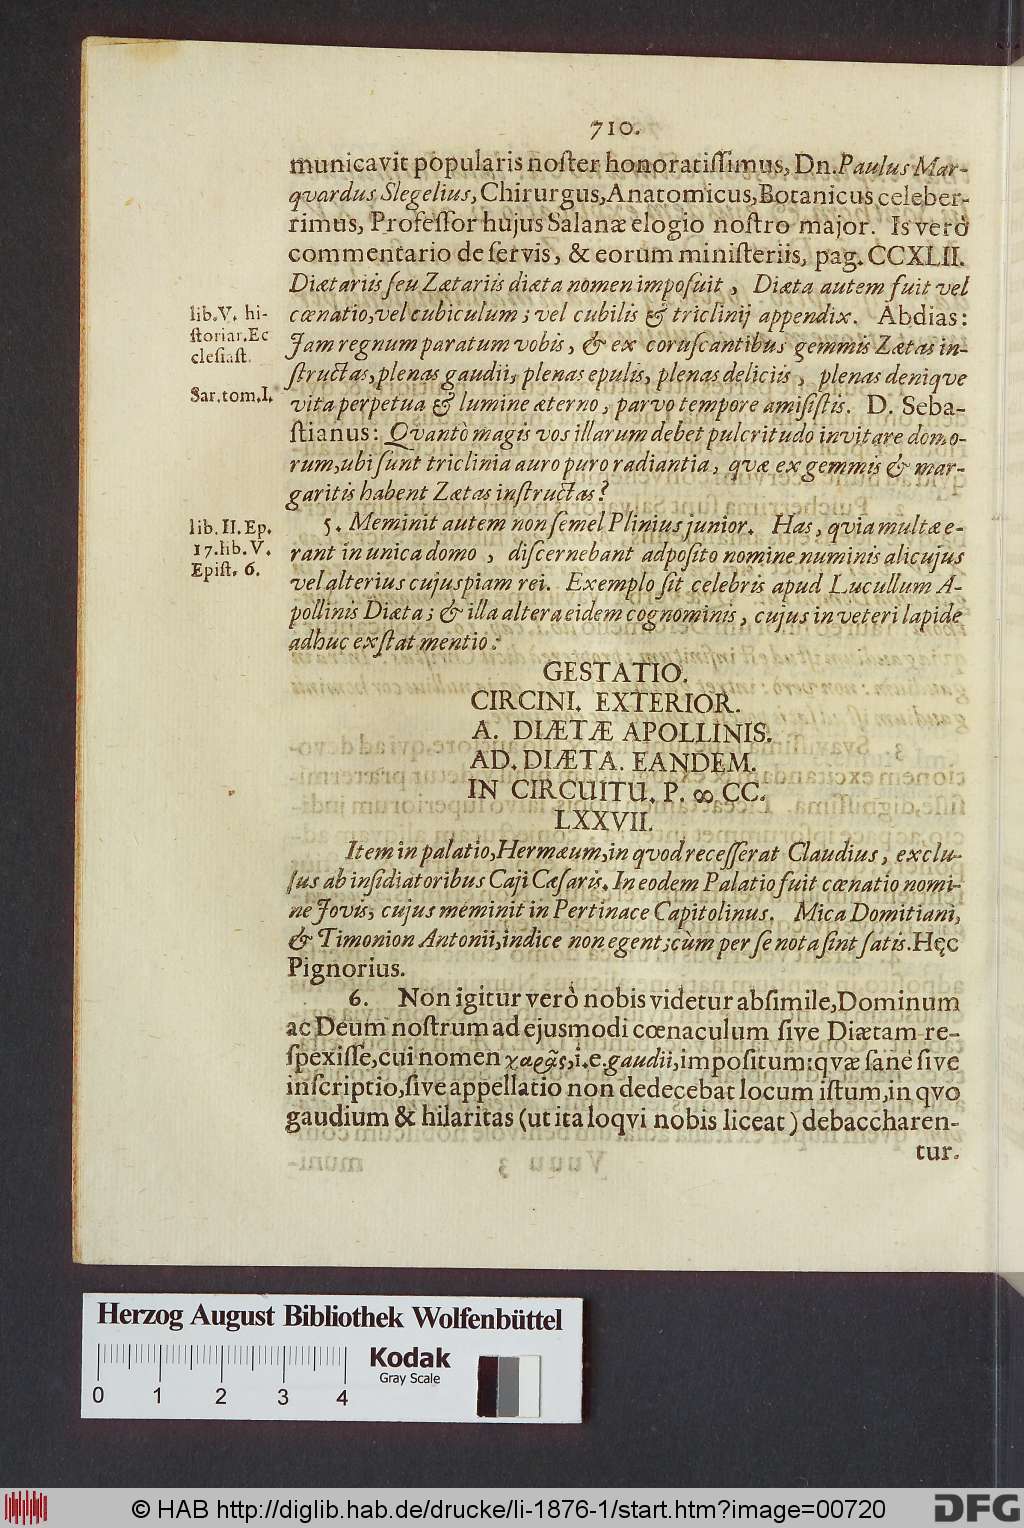 710.
municavit popularis noſter honoratiſſimus, Dn. Paulus Mar-
qvardus Slegelius, Chirurgus, Anatomicus, Botanicus celeber-
rimus, Profeſſor hujus Salanæ elogio noſtro major. Is verò
commentario de ſervis, & eorum miniſteriis, pag. CCXLII.
Diætariis ſeu Zætariis diæta nomen impoſuit, Diæta autem fuit vel
cœnatio, vel cubiculum; vel cubilis & triclinij appendix. Abdias:
Jam regnum paratum vobis, & ex coruſcantibus gemmis Zætas in-
ſtructas, plenas gaudii, plenas epulis, plenas deliciis, plenas deniqve
vita perpetua & lumine æterno, parvo tempore amiſiſtis. D. Seba-
ſtianus: Qvantò magis vos illarum debet pulcritudo invitare domo-
rum, ubi ſunt triclinia auro puro radiantia, qvæ ex gemmis & mar-
garitis habent Zætas inſtructas?
lib. V. hi-
ſtoriar. Ec
cleſiaſt.
Sar. tom. I.
5. Meminit autem non ſemel Plinius junior. Has, qvia multæ e-
rant in unica domo, diſcernebant adpoſito nomine numinis alicujus
vel alterius cujuspiam rei. Exemplo ſit celebris apud Lucullum A-
pollinis Diæta; & illa altera eidem cognominis, cujus in veteri lapide
adhuc exſtat mentio:
lib. II. Ep.
17. lib. V.
Epiſt. 6.
GESTATIO.
CIRCINI. EXTERIOR.
A. DIÆTÆ APOLLINIS.
AD. DIÆTA. EANDEM.
IN CIRCUITU. P. ∞ CC.
LXXVII.
Item in palatio, Hermæum, in qvod receſſerat Claudius, exclu-
ſus ab inſidiatoribus Caji Cæſaris. In eodem Palatio fuit cœnatio nomi-
ne Jovis, cujus meminit in Pertinace Capitolinus. Mica Domitiani,
& Timonion Antonii, indice non egent; cùm per ſe nota ſint ſatis. Hęc
Pignorius.
6. Non igitur verò nobis videtur abſimile, Dominum
ac Deum noſtrum ad ejusmodi cœnaculum ſive Diætam re-
ſpexiſſe, cui nomen χαρᾶς, i. e. gaudii, impoſitum: qvæ ſanè ſive
inſcriptio, ſive appellatio non dedecebat locum iſtum, in qvo
gaudium & hilaritas (ut ita loqvi nobis liceat) debaccharen-
tur.
Herzog August Bibliothek Wolfenbüttel
Kodak
Gray Scale
0 1 2 3 4
© HAB http://diglib.hab.de/drucke/li-1876-1/start.htm?image=00720
DFG